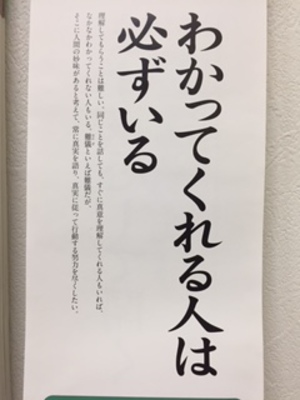 わかってくれる人は
必ずいる
理解してもらうことは難しい。同じことを話しても、すぐに真意を理解してくれる人もいれば、
なかなかわかってくれない人もいる。難儀といえば難儀だが、
そこに人間の妙味があると考えて、常に真実を語り、真実に従って行動する努力を尽くしたい。